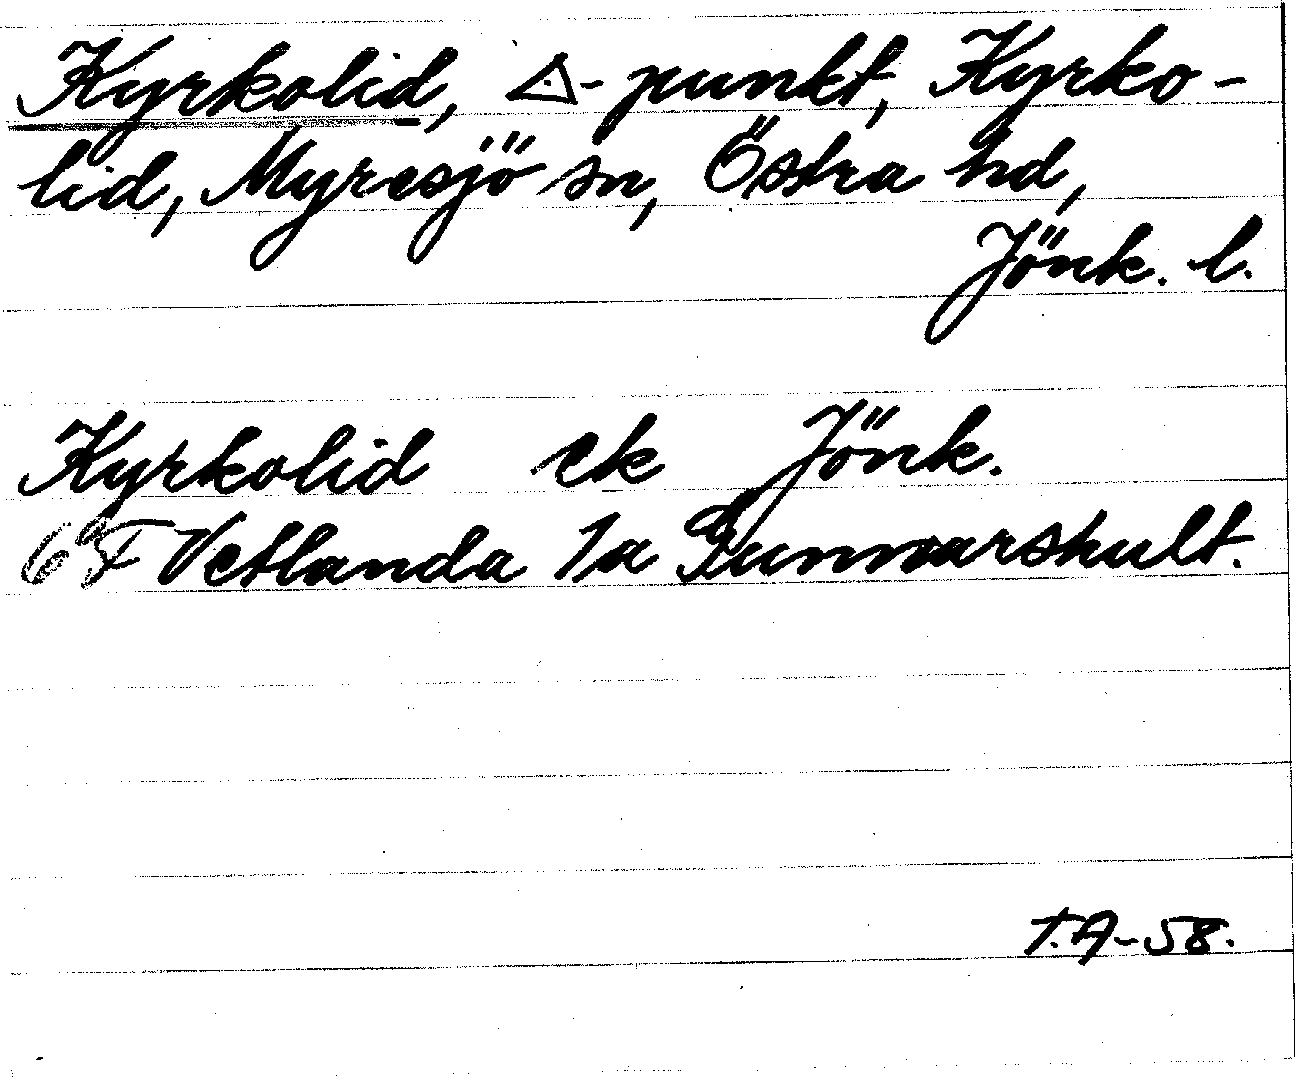 Kyrkolid, △-punkt, Kyrko-
lid, Myresjö sn, Östra hd,
Jönk. l.
Kyrkolid ek Jönk.
6F Vetlanda 1a Gunnarshult.
T.A-58.